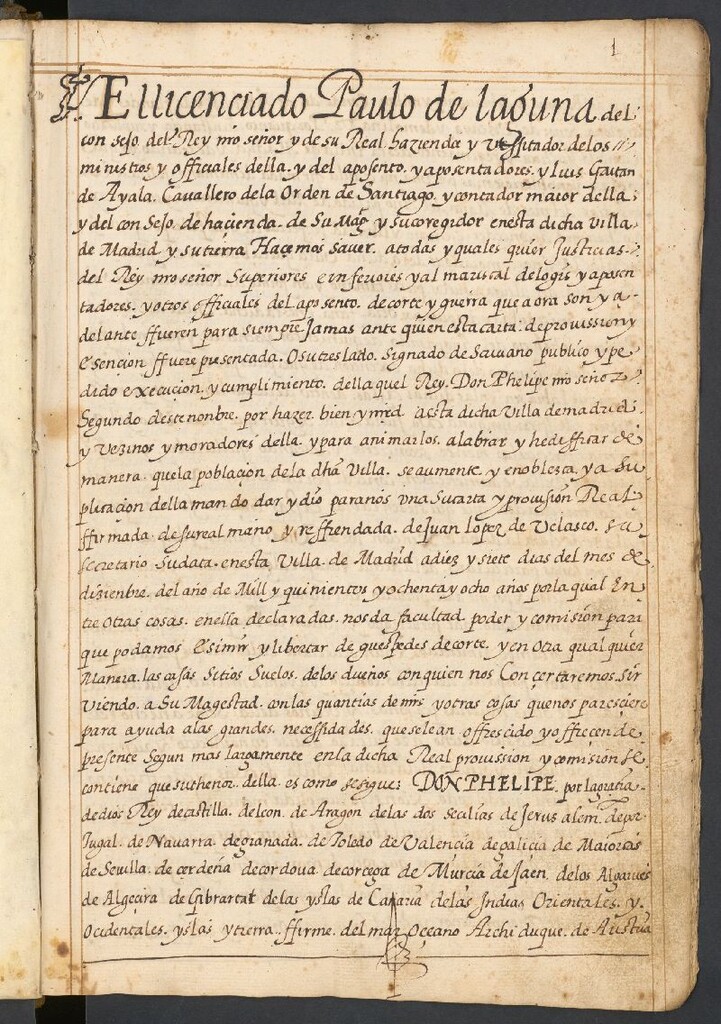 1
El licenciado Paulo de laguna del
con sejo del Rey mro señor y de su Real hazienda y vissitador de los
ministros y officiales della. y del aposento. y aposentadores. y Luis Gaitan
de Ayala. Cavallero dela Orden de Santiago. y contador maior della
y del con Sejo. de hacienda. de Su Mag. y su coregidor enesta dicha villa
de Madrid y su tierra Hacemos saver. a todas y quales quier Justicias.
del Rey mro señor Superiores e inferiores y al mariscal de logis y aposen
tadores. y otros officiales del aposento. de corte y guerra que aora son y a
delante ffueren para siempre Jamas ante quien esta carta. de provission y
Esencion ffuere presentada. O su treslado. Signado de Scrivano publico y pe
dido execucion. y cumplimiento. della quel Rey. Don Phelipe mro señor
Segundo deste nonbre. por hazer. bien y mrd aesta dicha Villa de madrid.
y Vezinos y moradores della. y para animarlos. a labrar y hediffiçar de
manera. que la poblaçion de la dha Villa. se aumente. y enoblezca, y a Su
plicacion della man do dar y dio para nos una Su carta y provision Real
ffirmada. de su real mano y reffrendada. de Juan Lopez de Velasco. su
secretario Su data. enesta Villa. de Madrid a diez y siete dias del mes de
diziembre. del año de Mill y quinientos y ochenta y ocho años por la qual En
tre otras cosas. en ella declaradas. nos da facultad. poder y comision para
que podamos Esimir y libertar de guespedes de corte. y en otra qual quier
Manera. las casas Sitios Suelos. de los dueños con quien nos Con certaremos. Sir
viendo. a Su Magestad. con las quantias de mrs y otras cosas que nos paresciere
para ayuda a las grandes. necessida des. que se le an offrescido y offrecen de
presente Segun mas largamente en la dicha Real provission y comision se
contiene que su thenor. della. es como se sigue: DON PHELIPE. por la gratia
de dios Rey de castilla. de leon. de Aragon de las dos secilias de Jerusalem. de por
tugal. de Navarra. de granada. de Toledo de Valencia de galicia de Maiorcas
de Sevilla. de cerdeña de cordova. de corcega de Murcia de Jaen. de los Algarves
de Algecira de Gibraltar de las yslas de Canaria de las Indias Orientales. y.
Occidentales. yslas y tierra. ffirme. del mar Oceano Archi duque. de Austria